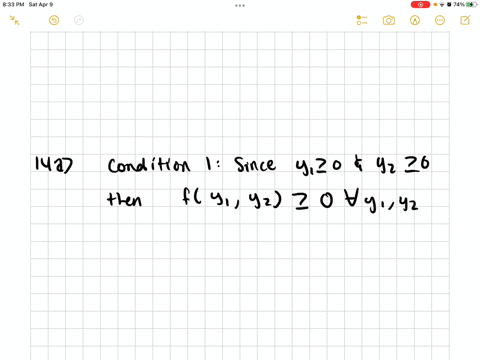 8:33 PM Sat Apr 9
74%
14a) Condition 1: Since y₁ ≥ 0 & y₂ ≥ 0
then f( y₁, y₂) ≥ 0 ∀ y₁, y₂